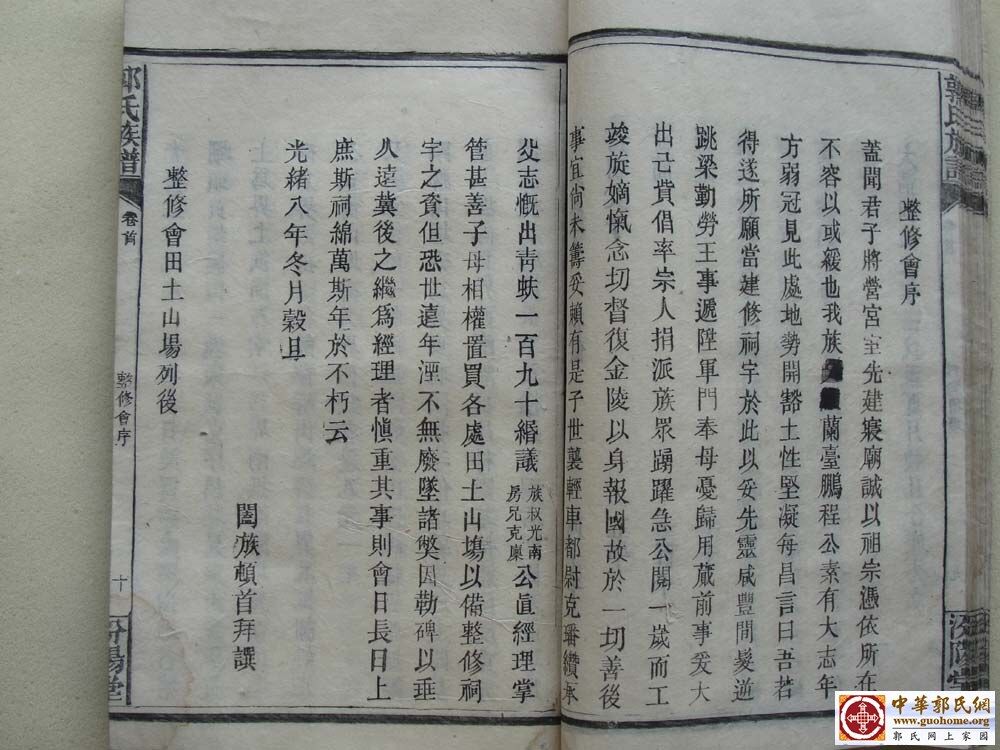 郭氏族譜
整修會序
蓋聞君子將營宮室先建寢廟誠以祖宗憑依所在
不容以或緩也我族蘭臺鵬程公素有大志年
方弱冠見此處地勢開豁土性堅凝每昌言曰吾若
得遂所願當建修祠宇於此以妥先靈咸豐間髮逆
跳梁勤勞王事遞陞軍門奉母憂歸用蕆前事爰大
出己貲倡率宗人捐派族眾踴躍急公閱一歲而工
竣旋嫡愾念切督復金陵以身報國故於一切善後
事宜尚未籌妥賴有是子世襲輕車都尉克璠纘承
父志慨出青蚨一百九十緡議族叔光南房兄克稟公眞經理掌
管甚善子母相權置買各處田土山塲以備整修祠
宇之資但恐世遠年湮不無廢墜諸弊因勒碑以垂
久遠冀後之繼爲經理者愼重其事則會日長日上
庶斯祠綿萬斯年於不朽云
光緒八年冬月穀旦
闔族頓首拜譔
整修會田土山場列後
郭氏族譜
卷首
整修會序
十
汾陽堂
汾陽堂
中華郭氏網
www.guohome.org
郭氏网上家园